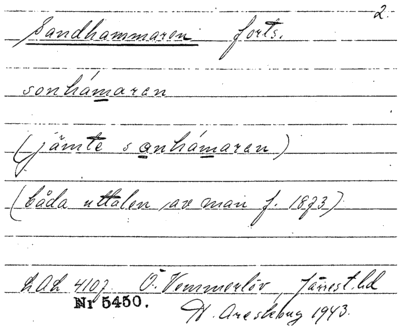 2.
Sandhammaren forts.
sonhámaren
(jämte sanhámaren)
(båda uttalen av man f. 1873)
LAL 4107. Ö. Vemmerlöv, Järrest. hd
Nr 5450.
1943.